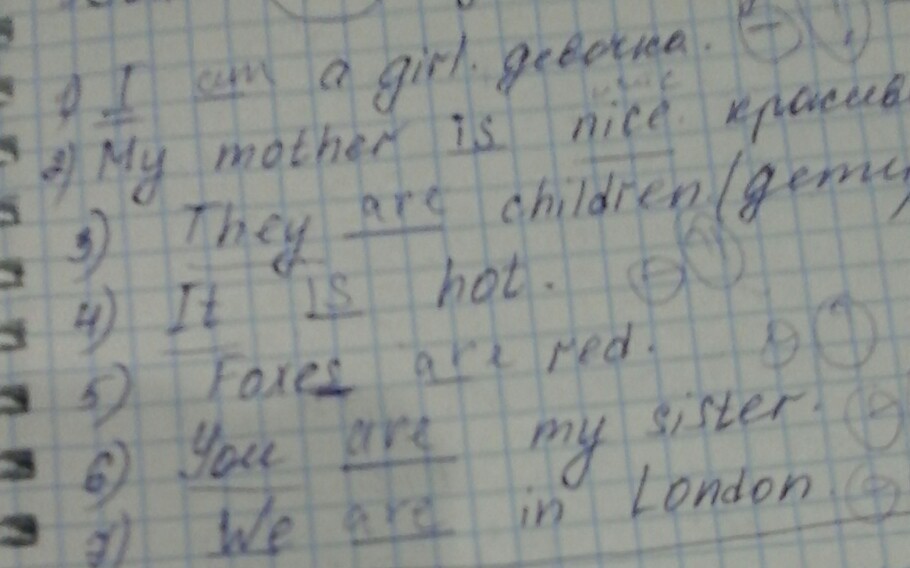 1) I am a girl. девочка.
2) My mother is nice красив
3) They are children (дети)
4) It is hot.
5) Foxes are red.
6) You are my sister.
7) We are in London.